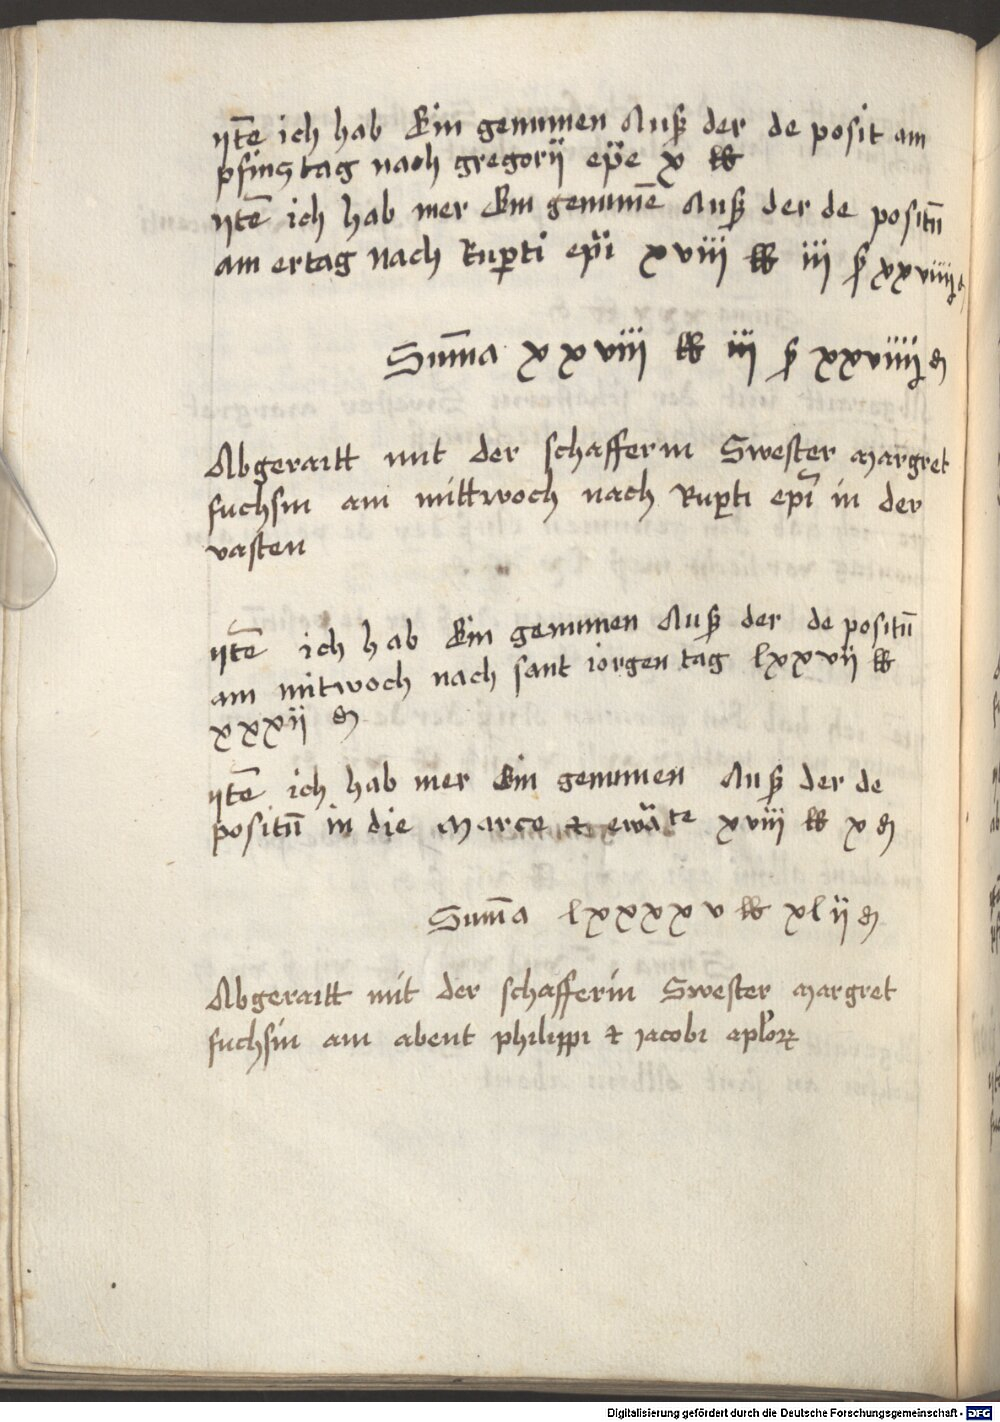 ytē ich hab Ein genumen Auß der de posit am
pfinztag nach gregorij epē x lb
ytē ich hab mer Ein genumē Auß der de positū
am ertag nach Ruꝑti epi xviii lb iii ß xxviiij ₰
Sum̄a xxviii lb iii ß xxviiij ₰
Abgeraitt mit der schafferin Swester margret
fuchsin am mittwoch nach Ruꝑti epi in der
vasten
ytē ich hab Ein genumen Auß der de positū
am mitwoch nach sant iorgen tag lxxvij lb
xxxij ₰
ytē ich hab mer Ein genumen Auß der de
positū in die Marce et ewāte xviii lb x ₰
Sum̄a lxxxxv lb xlij ₰
Abgeraitt mit der schafferin Swester margret
fuchsin am abent philippi et iacobi apl'oꝝ
Digitalisierung gefördert durch die Deutsche Forschungsgemeinschaft - DFG